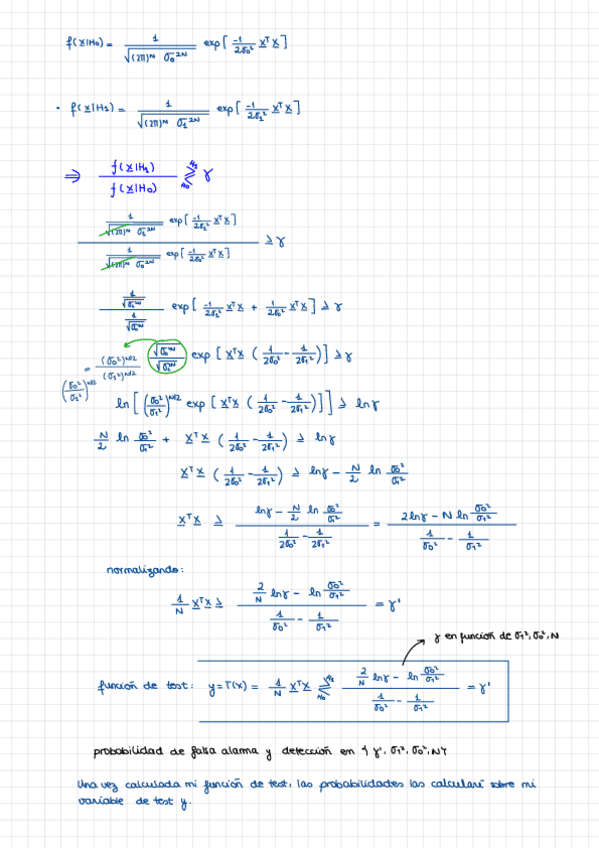 f(x|H₀) = 1 / √((2π)ᴺ σ₀²ᴺ) exp[ -1/2σ₀² xᵀx ]
· f(x|H₁) = 1 / √((2π)ᴺ σ₁²ᴺ) exp[ -1/2σ₁² xᵀx ]
⇒ f(x|H₁) / f(x|H₀) ≷ γ
1/√((2π)ᴺ σ₁²ᴺ) exp[ -1/2σ₁² xᵀx ] / 1/√((2π)ᴺ σ₀²ᴺ) exp[ -1/2σ₀² xᵀx ] ≥ γ
1/√σ₁²ᴺ / 1/√σ₀²ᴺ exp[ -1/2σ₁² xᵀx + 1/2σ₀² xᵀx ] ≥ γ
= (σ₀²)ᴺ/² / (σ₁²)ᴺ/² √σ₀²ᴺ / √σ₁²ᴺ exp[ xᵀx ( 1/2σ₀² - 1/2σ₁² ) ] ≥ γ
(σ₀²/σ₁²)ᴺ/²
ln[ (σ₀²/σ₁²)ᴺ/² exp[ xᵀx ( 1/2σ₀² - 1/2σ₁² ) ] ] ≥ lnγ
N/2 ln σ₀²/σ₁² + xᵀx ( 1/2σ₀² - 1/2σ₁² ) ≥ lnγ
xᵀx ( 1/2σ₀² - 1/2σ₁² ) ≥ lnγ - N/2 ln σ₀²/σ₁²
xᵀx ≥ (lnγ - N/2 ln σ₀²/σ₁²) / (1/2σ₀² - 1/2σ₁²) = (2lnγ - N ln σ₀²/σ₁²) / (1/σ₀² - 1/σ₁²)
normalizando:
1/N xᵀx ≥ (2/N lnγ - ln σ₀²/σ₁²) / (1/σ₀² - 1/σ₁²) = γ'
γ en función de σ₁², σ₀², N
función de test: y=T(x) = 1/N xᵀx ≷ (2/N lnγ - ln σ₀²/σ₁²) / (1/σ₀² - 1/σ₁²) = γ'
probabilidad de falsa alarma y detección en {γ', σ₁², σ₀², N}
Una vez calculada mi función de test, las probabilidades las calcularé sobre mi
variable de test y.